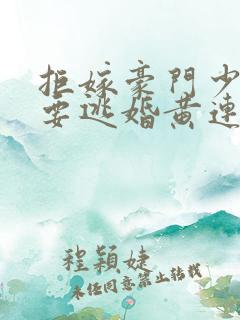 拒嫁豪門少
要逃婚黃連
程穎婕
未經同意禁止轉載